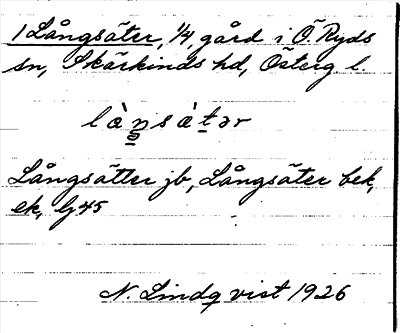 1 Långsäter, 1/4, gård i Ö. Ryds
sn, Skärkinds hd, Österg l.
Långsätter jb, Långsäter bek,
ek, Gj 45
N. Lindqvist 1926